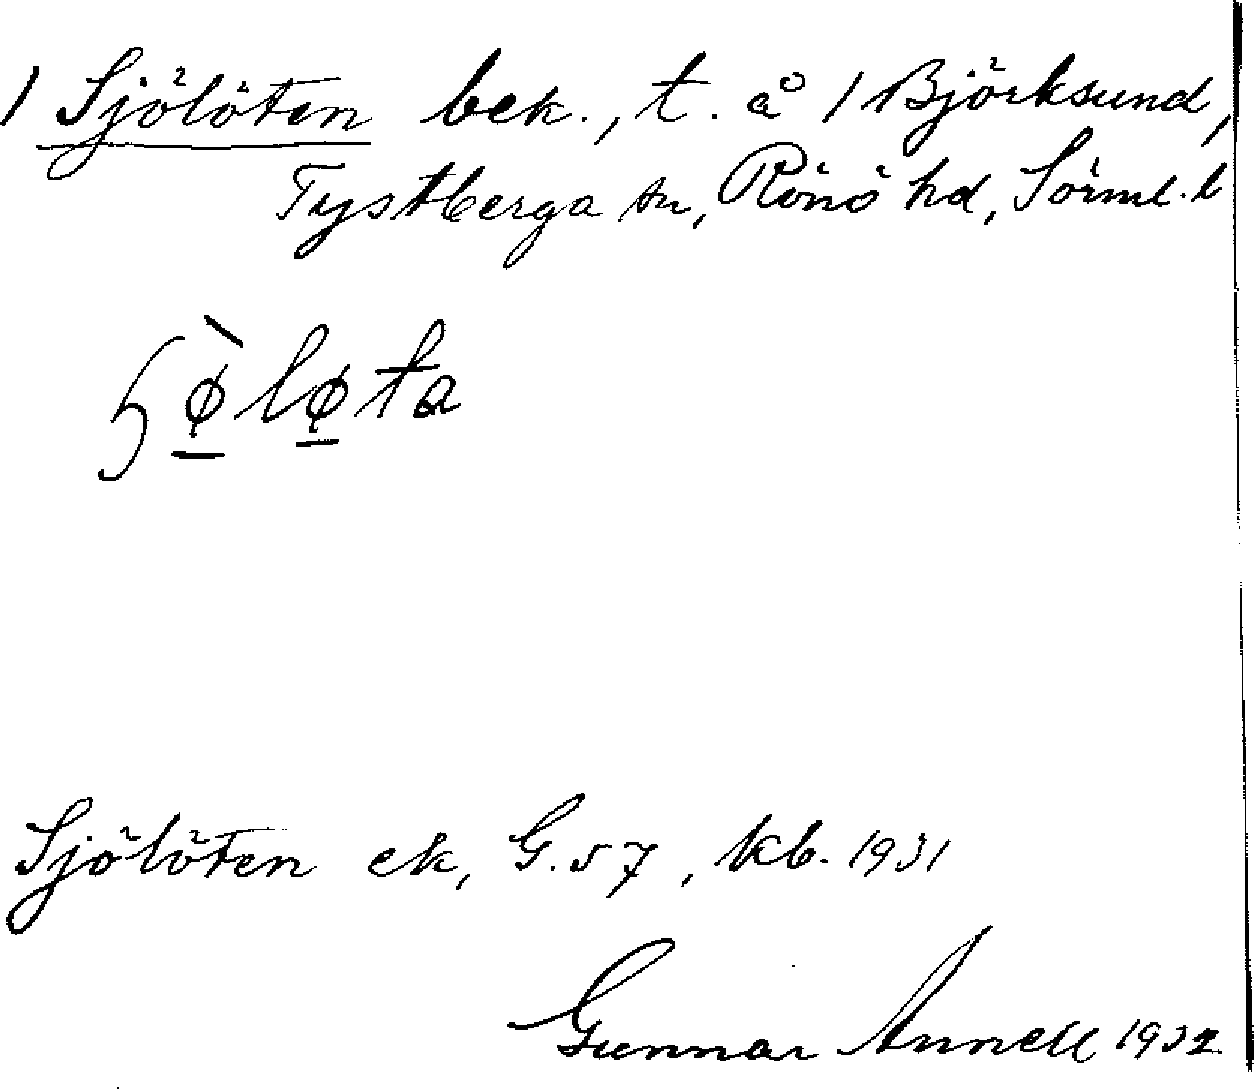 1 Sjölöten bek., t. å 1 Björksund,
Tystberga sn, Rönö hd, Sörml. l
ʃø̠̀lø̠ta
Sjölöten ek, G. 57, kb. 1931
Gunnar Annell 1932